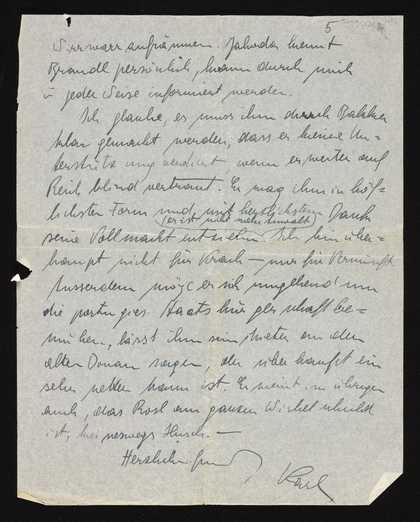 5
Wirrwarr aufräumen. Jahoda kennt
Brandl persönlich, kann durch mich
in jeder Weise informiert werden.
Ich glaube, es muss ihm durch
klar gemacht werden, dass er keine Un-
terstützung verdient wenn er weiter auf
Reich blind vertraut. Er mag ihm in höf-
lichster Form und mit herzlichstem Dank
(er ist nicht mein Anwalt)
seine Vollmacht entziehn. Ich bin über-
haupt nicht für Krach – nur für Vernunft
Ausserdem möge er sich umgehend um
die portugies. Staatsbürgerschaft be-
mühen, lässt ihm sein Vater an der
alten Donau sagen, der überhaupt ein
sehr netter Mann ist. Er meint im übrigen
auch, dass Rosl am ganzen Wirbel schuld
ist, keineswegs Hirsch. –
Karl